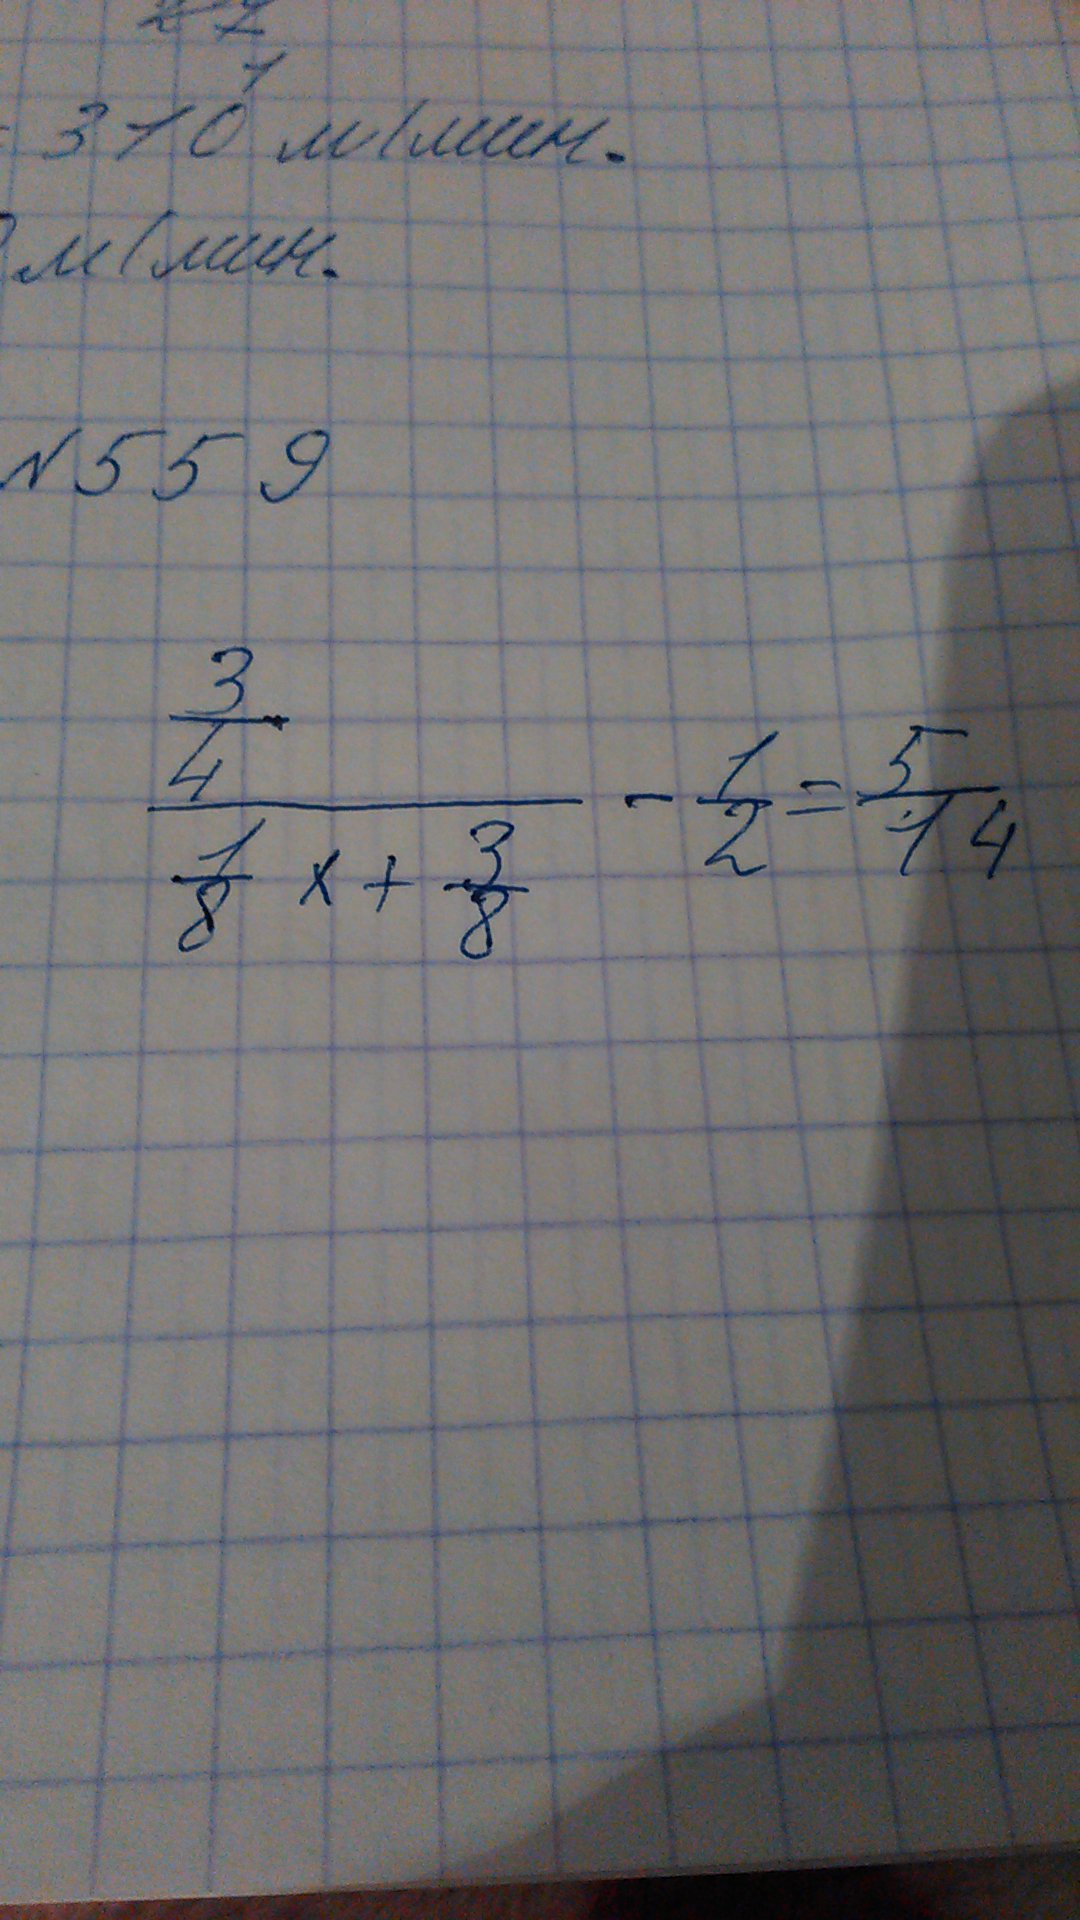 27
1
= 310 м/мин.
0 м/мин.
N559
(3/4)/(1/8 x + 3/8) - 1/2 = 5/14